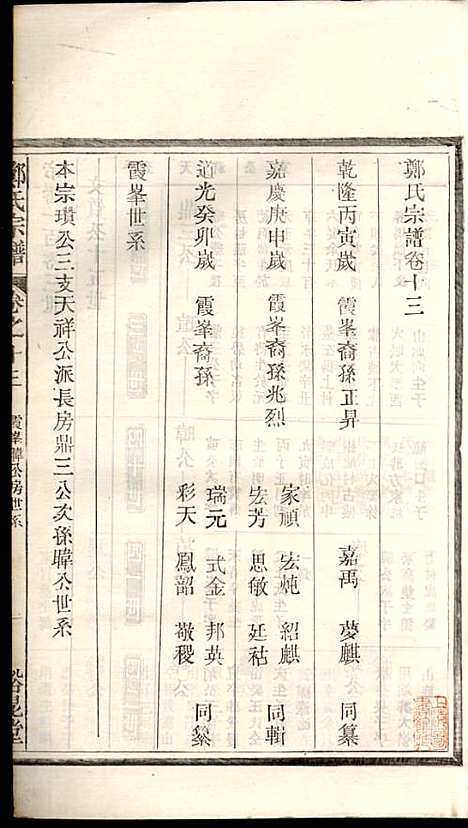 鄭氏宗譜卷十三
乾隆丙寅歲 霞峯裔孫正昇 嘉禹 夢麒 同纂
嘉慶庚申歲 霞峯裔孫兆烈 家順 宏炖 紹麒 宏芳 思敏 廷祜 同輯
道光癸卯歲 霞峯裔孫 瑞元 式金 邦英 彩天 鳳韶 敬稷 同纂
霞峯世系
本宗瓚公三支天祥公派長房鼎三公次孫暐公世系
鄭氏宗譜 卷之十三 霞峯暐公房世系 一